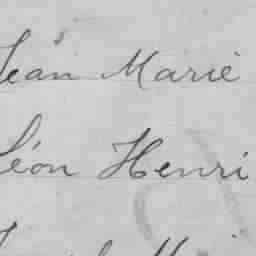 Jean Marie
Léon Henri